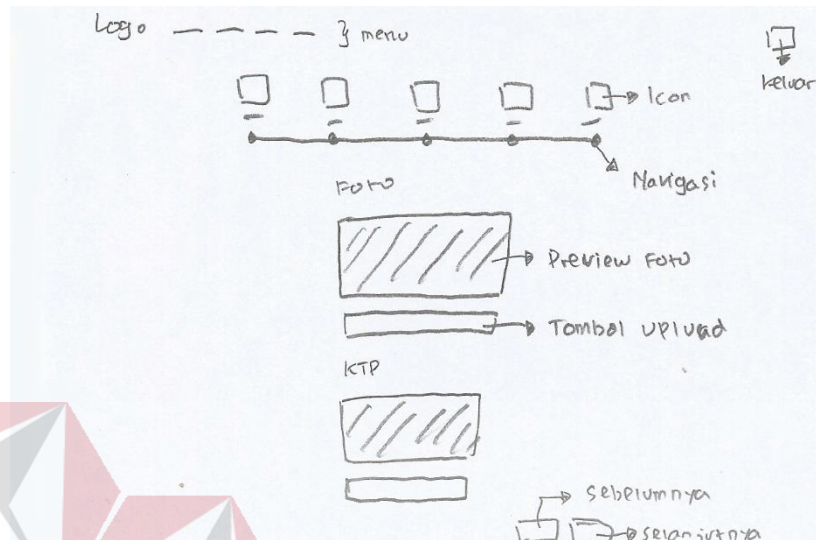 Logo } menu
keluar
Icon
Navigasi
FOTO
Preview Foto
Tombol upload
KTP
sebelumnya
selanjutnya